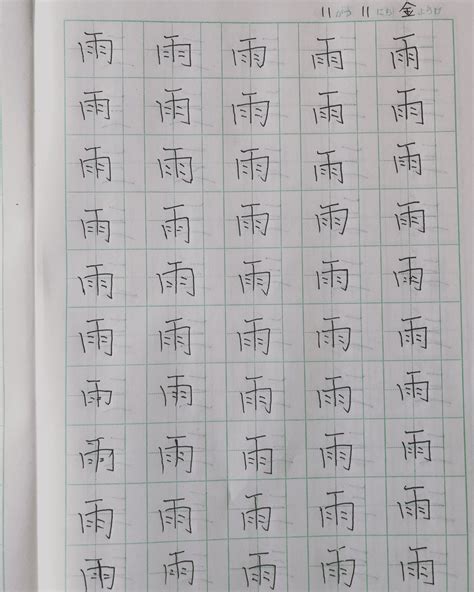 11がつ11にち金ようび
雨雨雨雨雨雨雨雨雨雨
雨雨雨雨雨雨雨雨雨雨
雨雨雨雨雨雨雨雨雨雨
雨雨雨雨雨雨雨雨雨雨
雨雨雨雨雨雨雨雨雨雨